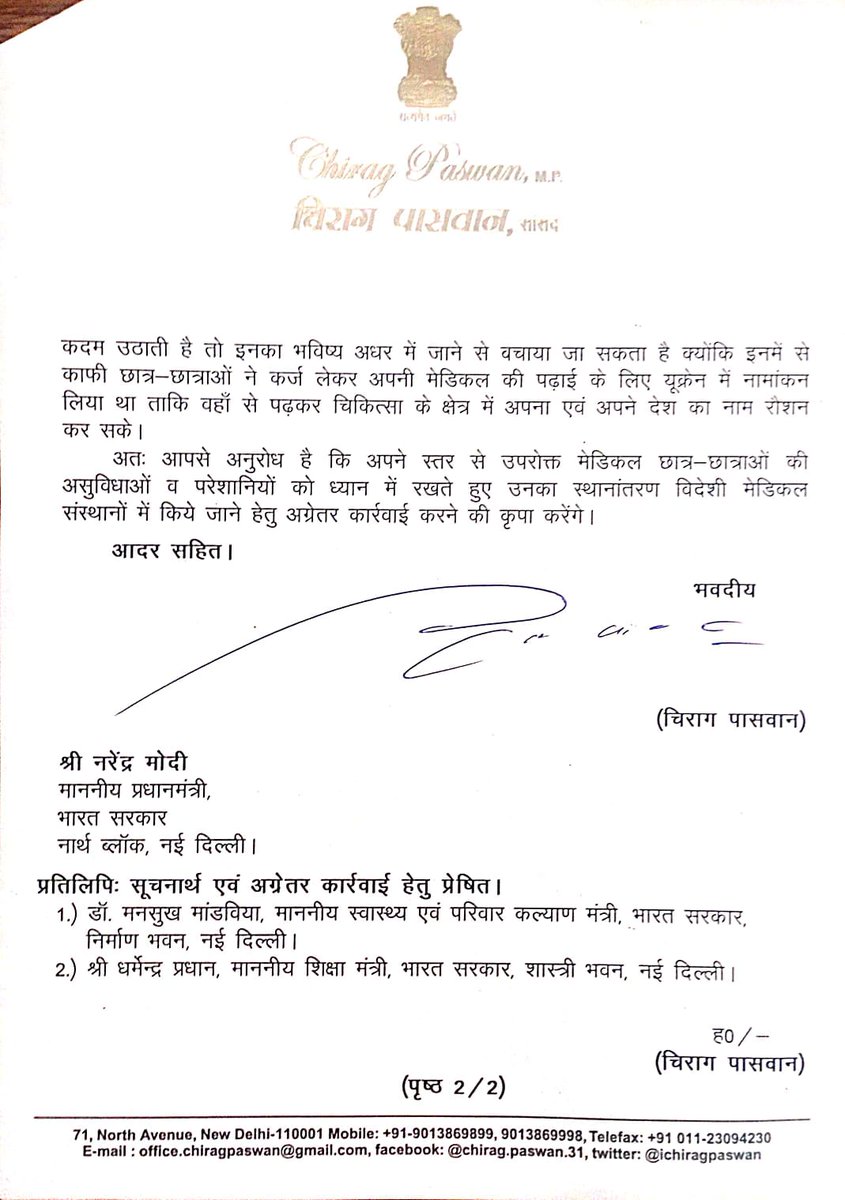 सत्यमेव जयते
Chirag Paswan, M.P.
चिराग पासवान, सांसद
कदम उठाती है तो इनका भविष्य अधर में जाने से बचाया जा सकता है क्योंकि इनमें से
काफी छात्र–छात्राओं ने कर्ज लेकर अपनी मेडिकल की पढ़ाई के लिए यूक्रेन में नामांकन
लिया था ताकि वहाँ से पढ़कर चिकित्सा के क्षेत्र में अपना एवं अपने देश का नाम रौशन
कर सके।
अतः आपसे अनुरोध है कि अपने स्तर से उपरोक्त मेडिकल छात्र–छात्राओं की
असुविधाओं व परेशानियों को ध्यान में रखते हुए उनका स्थानांतरण विदेशी मेडिकल
संस्थानों में किये जाने हेतु अग्रेतर कार्रवाई करने की कृपा करेंगे।
आदर सहित।
भवदीय
(चिराग पासवान)
श्री नरेंद्र मोदी
माननीय प्रधानमंत्री,
भारत सरकार
नार्थ ब्लॉक, नई दिल्ली।
प्रतिलिपिः सूचनार्थ एवं अग्रेतर कार्रवाई हेतु प्रेषित।
1.) डॉ. मनसुख मांडविया, माननीय स्वास्थ्य एवं परिवार कल्याण मंत्री, भारत सरकार,
निर्माण भवन, नई दिल्ली।
2.) श्री धर्मेन्द्र प्रधान, माननीय शिक्षा मंत्री, भारत सरकार, शास्त्री भवन, नई दिल्ली।
ह0/–
(चिराग पासवान)
(पृष्ठ 2/2)
71, North Avenue, New Delhi-110001 Mobile: +91-9013869899, 9013869998, Telefax: +91 011-23094230
E-mail : office.chiragpaswan@gmail.com, facebook: @chirag.paswan.31, twitter: @ichiragpaswan